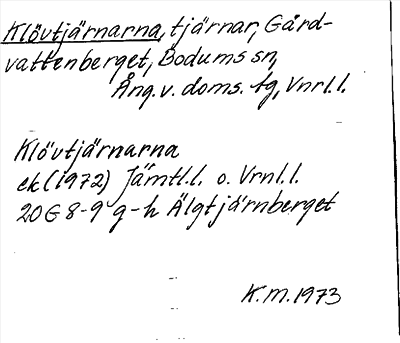 Klövtjärnarna, tjärnar, Gård-
vattenberget, Bodums sn,
Ång. v. doms. tg, Vnrl.l.
Klövtjärnarna
ek (1972) Jämtl.l. o. Vrnl.l.
20G 8-9 g-h Älgtjärnberget
K.M. 1973